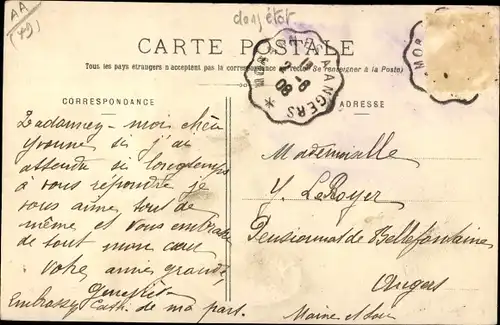 AA
(49)
dans l'état
CARTE POSTALE
Tous les pays étrangers n'acceptent pas la correspondance au recto (Se renseigner à la Poste)
ANGERS
08
MOR
CORRESPONDANCE
ADRESSE
moi chère
Yvonne si j'ai
attendu si longtemps
à vous répondre je
vous aime tout de
même et vous embrasse
de tout mon cœur
Votre amie
Geneviève
Embrassez Cath. de ma part.
Mademoiselle
Y. LeRoyer
Pensionnat de Bellefontaine
Angers
Maine et Loire